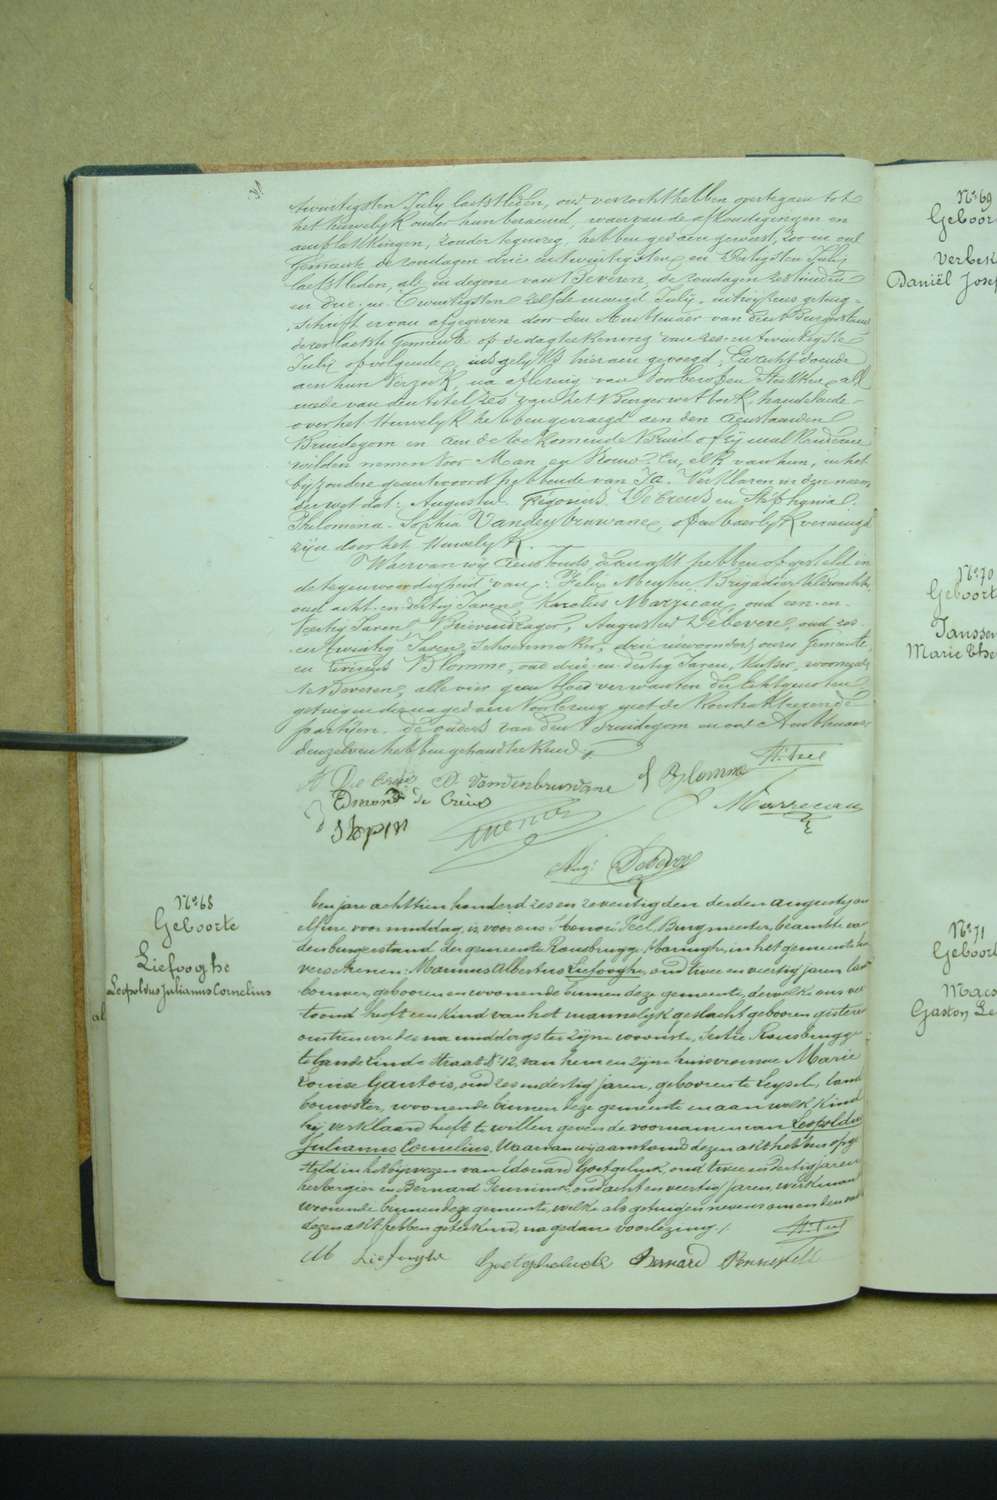 twintigsten July laetstleden, ons verzocht hebben overtegaen tot
het huwelyk onder hun beraemd, waervan de afkondigingen en
aenplakkingen, zonder tegenzeg, hebben gedaen geweest, zoo in onze
Gemeente de zondagen drie en twintigsten en dertigsten July
laetstleden, als in degene van Beveren, de zondagen zestienden
en drie-en-twintigsten zelfde maend July
schrift ervan afgegeven door den Amtenaer van den Burgerstand
dezer laetste Gemeente op de dagteekening van zes-en-twintigste
July opvolgende, insgelyks hieraen gevoegd. En recht doende
aen hun Verzoek, na aflezing van Voorberoepen Stukken, als
mede van den titel zes van het Burgerwetboek, handelende
over het Huwelyk hebben gevraegd aen den aenstaenden
Bruidegom en aen de toekomende Bruid of zy malkanderen
wilden nemen voor Man en Vrouw. En, elk van hun, in het
byzondere geantwoord hebbende van Ja. Verklaren in den naem
der wet dat: Augustus Decreus en Stephynia
Philomena Sophia Vandenbruwane, openbaerlyk vereenigd
zyn door het Huwelyk.
Waervan wij aenstonds dezen akt hebben opgesteld in
de tegenwoordigheid van: Felix Brigadier
oud acht-en-dertig Jaren, Karolus Marrecau, oud een-en-
Jaren Brievendrager, Augustus Debevere, oud zes
en twintig Jaren, Schoenmaker, drie inwoonders onzer Gemeente,
en Blomme, oud drie-en-dertig Jaren, Kutser, woonende
te Beveren, alle vier geen bloedverwanten der Echtgenoten
getuigen die na gedaen Voorlezing met de Kontrakteerende
partyen, de ouders van den Bruidegom en ons Amtenaer
denzelven hebben gehandteekend.
D. Vandenbruwane Blomme H. Peel
Edmond de Creus Marrecau
Aug. Debevere
No 68
Geboorte
Liefooghe
Leopoldus Julianus Cornelius
al
ben jare achttien honderd zes en zeventig den derden augusty om
elf ure voor middag, is voor ons Henri Peel, Burgmeester, beambte van
den burgerstand der gemeente Rousbrugge-Haringhe, in het gemeentehuis
verschenen: Mannus Albertus Liefooghe, oud twee en veertig jaren land
bouwer, geboren en woonende binnen deze gemeente, dewelke ons ver
toond heeft een kind van het mannelyk geslacht geboren gisteren
omtrent ure des na middags ten zyne woonst, Sectie Rousbrugge
Linde straat No 12, van hem en zyne huisvrouwe Marie
Louise Gantois, oud zes en dertig jaren, geboren te Leysele, land
bouwster, woonende binnen deze gemeente en aan welk kind
hij verklaard heeft te willen geven de voornamen van Leopoldus
Julianus Cornelius. Waarvan wij aanstonds dezen akt hebben opge
steld in het bywezen van Edouard Goetgeluck, oud twee en dertig jaren
herbergier en Bernard oud acht en veertig jaren, werkman
woonende binnen deze gemeente, welke als getuigen nevens ons en den vader
dezen akt hebben geteekend, na gedane voorlezing. H. Peel
M Liefooghe Goetgheluck Bernard
No 69
Geboor
Verbek
Daniël Josep
No 70
Geboort
Janssen
Marie The
No 71
Geboort
Maes
Gaston Le